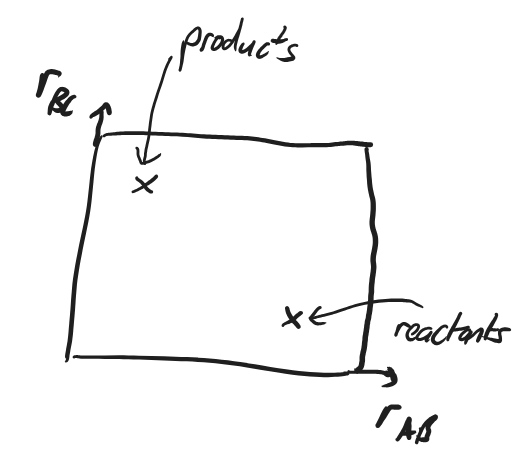 products
r_BC
x
x
reactants
r_AB